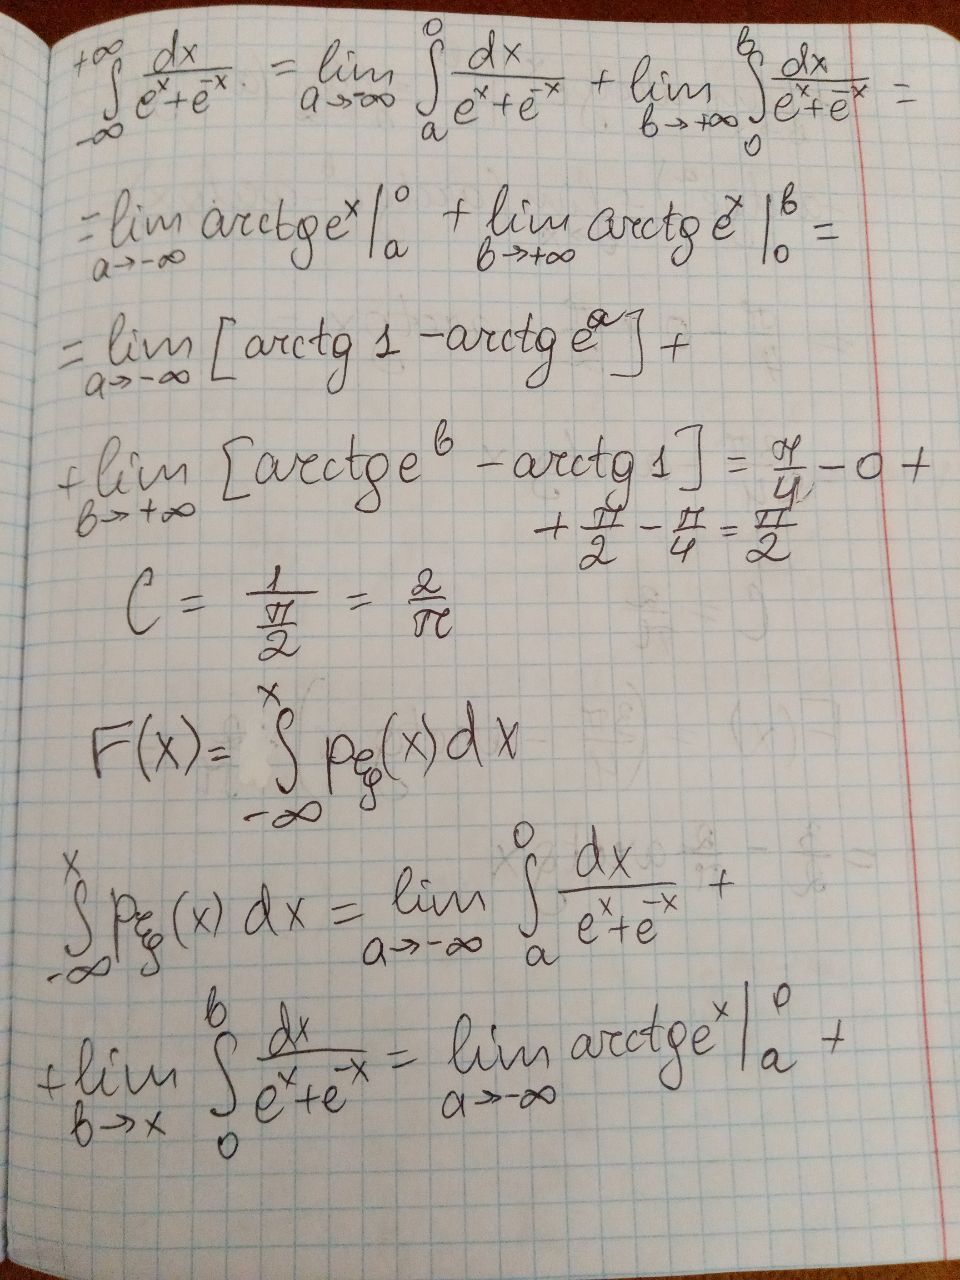 ∫_{-∞}^{+∞} dx/(e^x+e^{-x}) = lim_{a→-∞} ∫_a^0 dx/(e^x+e^{-x}) + lim_{b→+∞} ∫_0^b dx/(e^x+e^{-x}) =
= lim_{a→-∞} arctg e^x |_a^0 + lim_{b→+∞} arctg e^x |_0^b =
= lim_{a→-∞} [arctg 1 - arctg e^a] +
+ lim_{b→+∞} [arctg e^b - arctg 1] = π/4 - 0 +
+ π/2 - π/4 = π/2
C = 1/(π/2) = 2/π
F(x) = ∫_{-∞}^x p_ξ(x) dx
∫_{-∞}^x p_ξ(x) dx = lim_{a→-∞} ∫_a^0 dx/(e^x+e^{-x}) +
+ lim_{b→x} ∫_0^b dx/(e^x+e^{-x}) = lim_{a→-∞} arctg e^x |_a^0 +